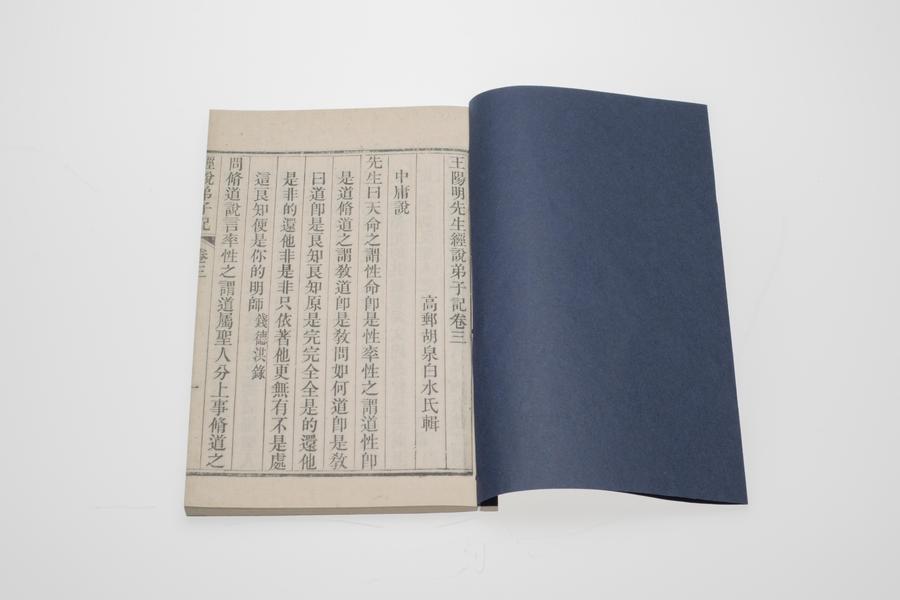 王陽明先生經說弟子記卷三
高郵胡泉白水氏輯
中庸說
先生曰天命之謂性命卽是性率性之謂道性卽
是道脩道之謂敎道卽是敎問如何道卽是敎
曰道卽是良知良知原是完完全全是的還他
是非的還他非是非只依著他更無有不是處
這良知便是你的明師錢德洪錄
問脩道說言率性之謂道屬聖人分上事脩道之
經說弟子記
卷三
一